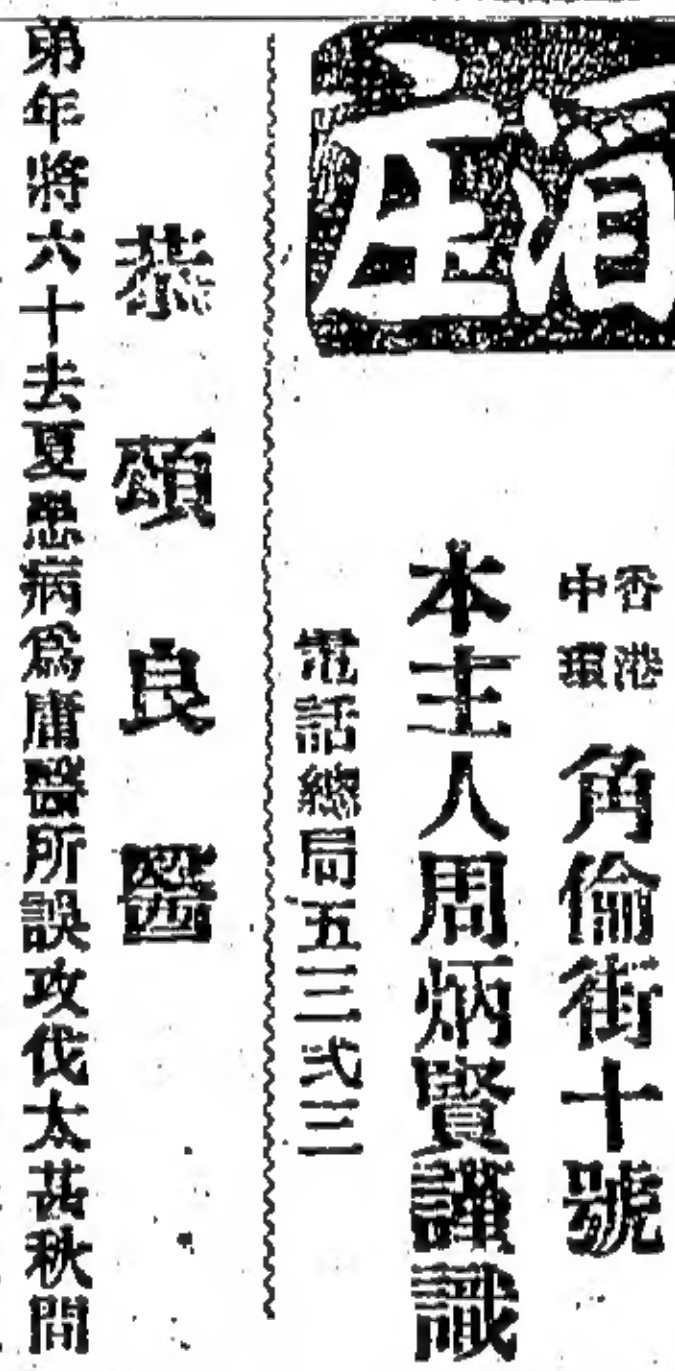 庄
香港中環 角倫街十號
本主人周炳賢謹識
電話總局五三弍三
恭頌良醫
弟年將六十去夏患病爲庸醫所誤攻伐太甚秋間